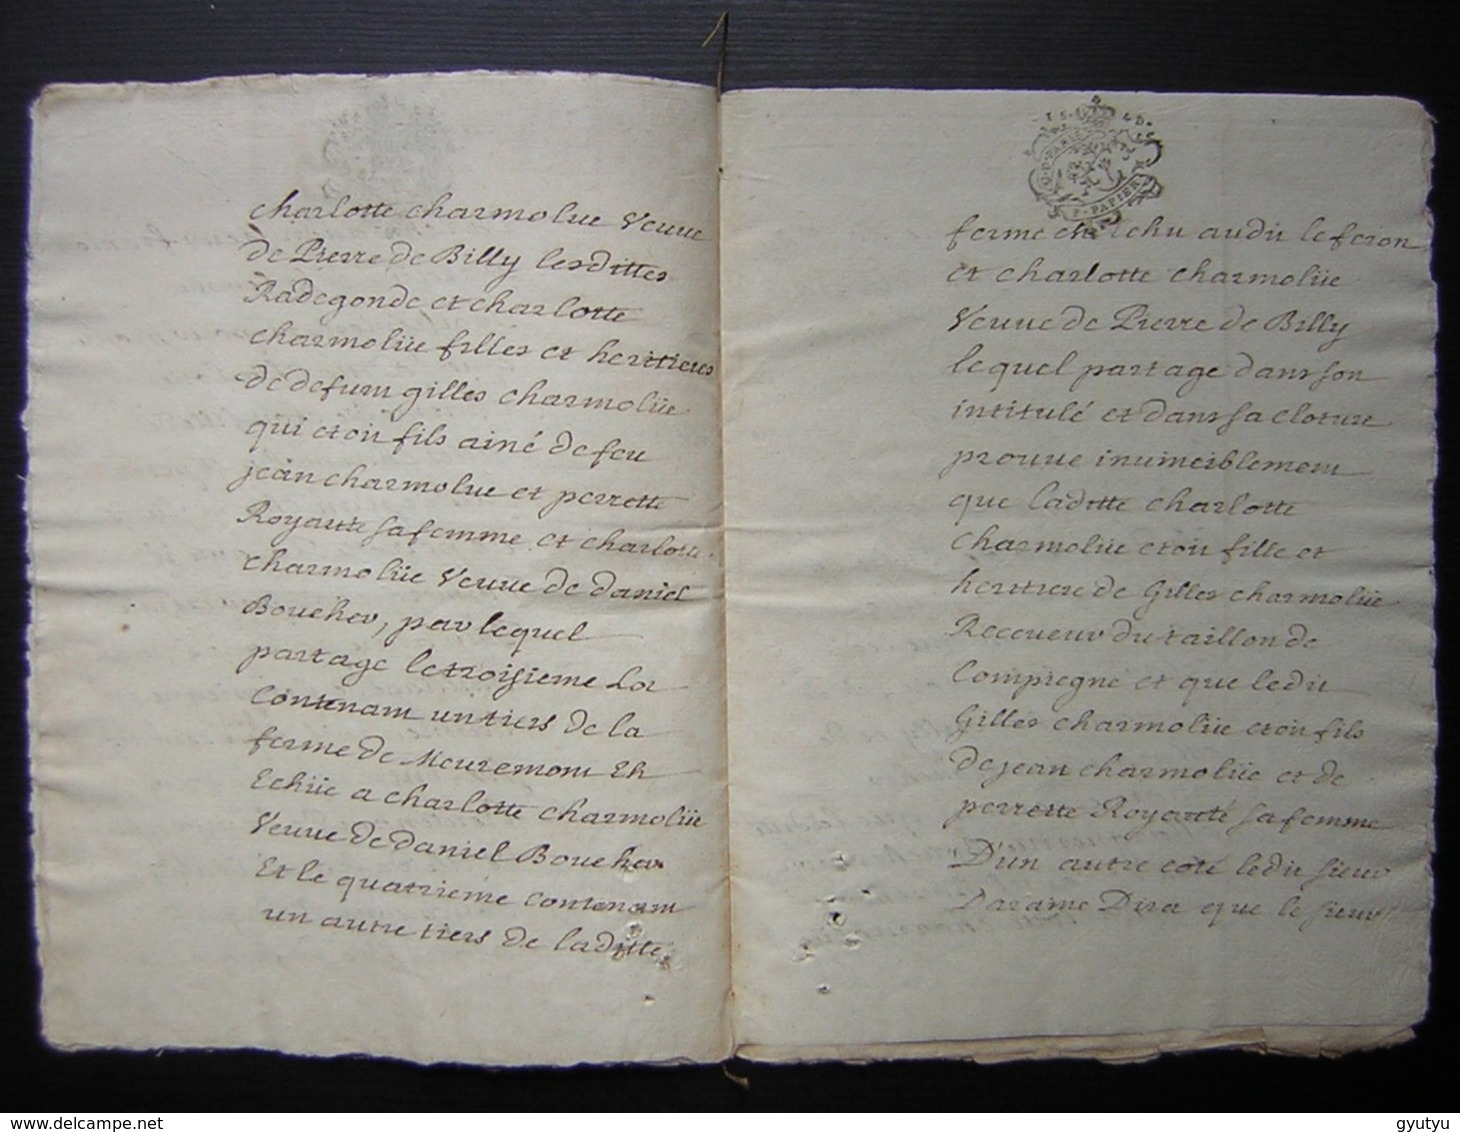 charlotte charmolue Veuve
de Pierre de Billy lesdittes
Radegonde et charlotte
charmolüe filles et heritieres
de defunt gilles charmolüe
qui etoit fils ainé de feu
jean charmolue et perrette
Royante sa femme et charlotte
charmolüe Veuve de daniel
Boucher, par lequel
partage le troisieme Lot
Contenant un tiers de la
ferme de Meuremont Est
Echüe a charlotte charmolüe
Veuve de daniel Boucher
Et le quatrieme Contenant
un autre tiers de laditte
G. D. PARIS
P. PAPIER
ferme echu audit le feron
et charlotte charmolüe
Veuve de Pierre de Billy
lequel partage dans son
intitulé et dans sa cloture
prouve invinciblement
que laditte charlotte
charmolüe etoit fille et
heritiere de Gilles charmolüe
Receveur du taillon de
Compiegne et que ledit
Gilles charmolüe etoit fils
de jean charmolüe et de
perrette Royanté sa femme
D'un autre coté ledit sieur
Darame Dira que le sieur
delcampe.net
gyutyu